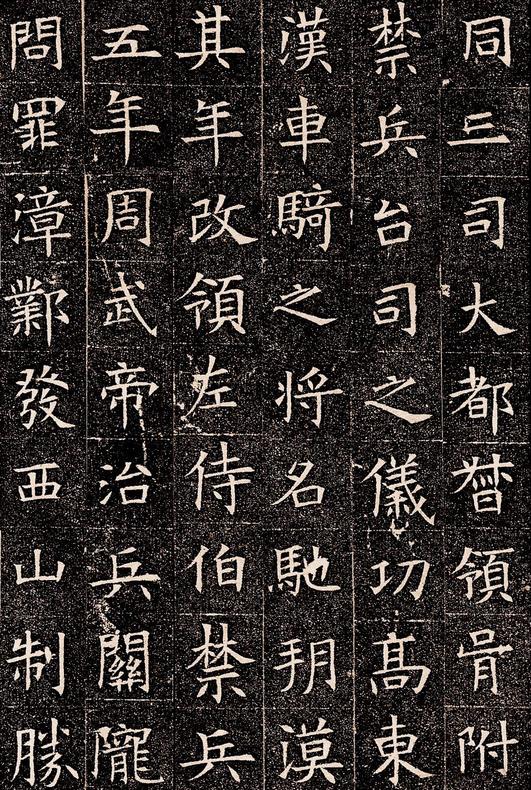 同三司大都督領骨附
禁兵台司之儀功高東
漢車騎之將名馳朔漠
其年改領左侍伯禁兵
五年周武帝治兵關隴
問罪漳鄴發西山制勝